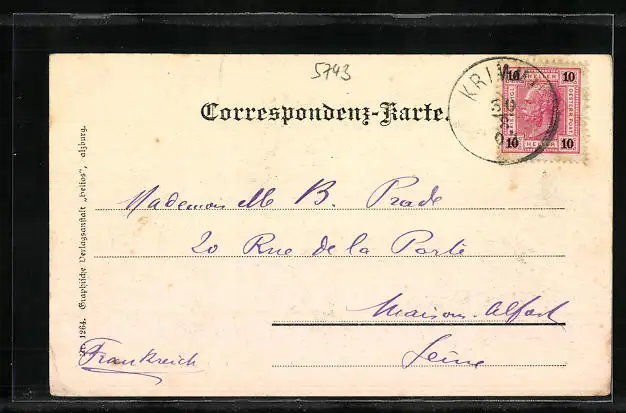 5743
Correspondenz-Karte.
KRIMML
10 HELLER 10
10 HELLER 10
30
Mademoiselle B. Prade
20 Rue de la Porte
Maison-Alfort
Seine
Frankreich
1264. Graphische Verlagsanstalt „Helios“, alzburg.